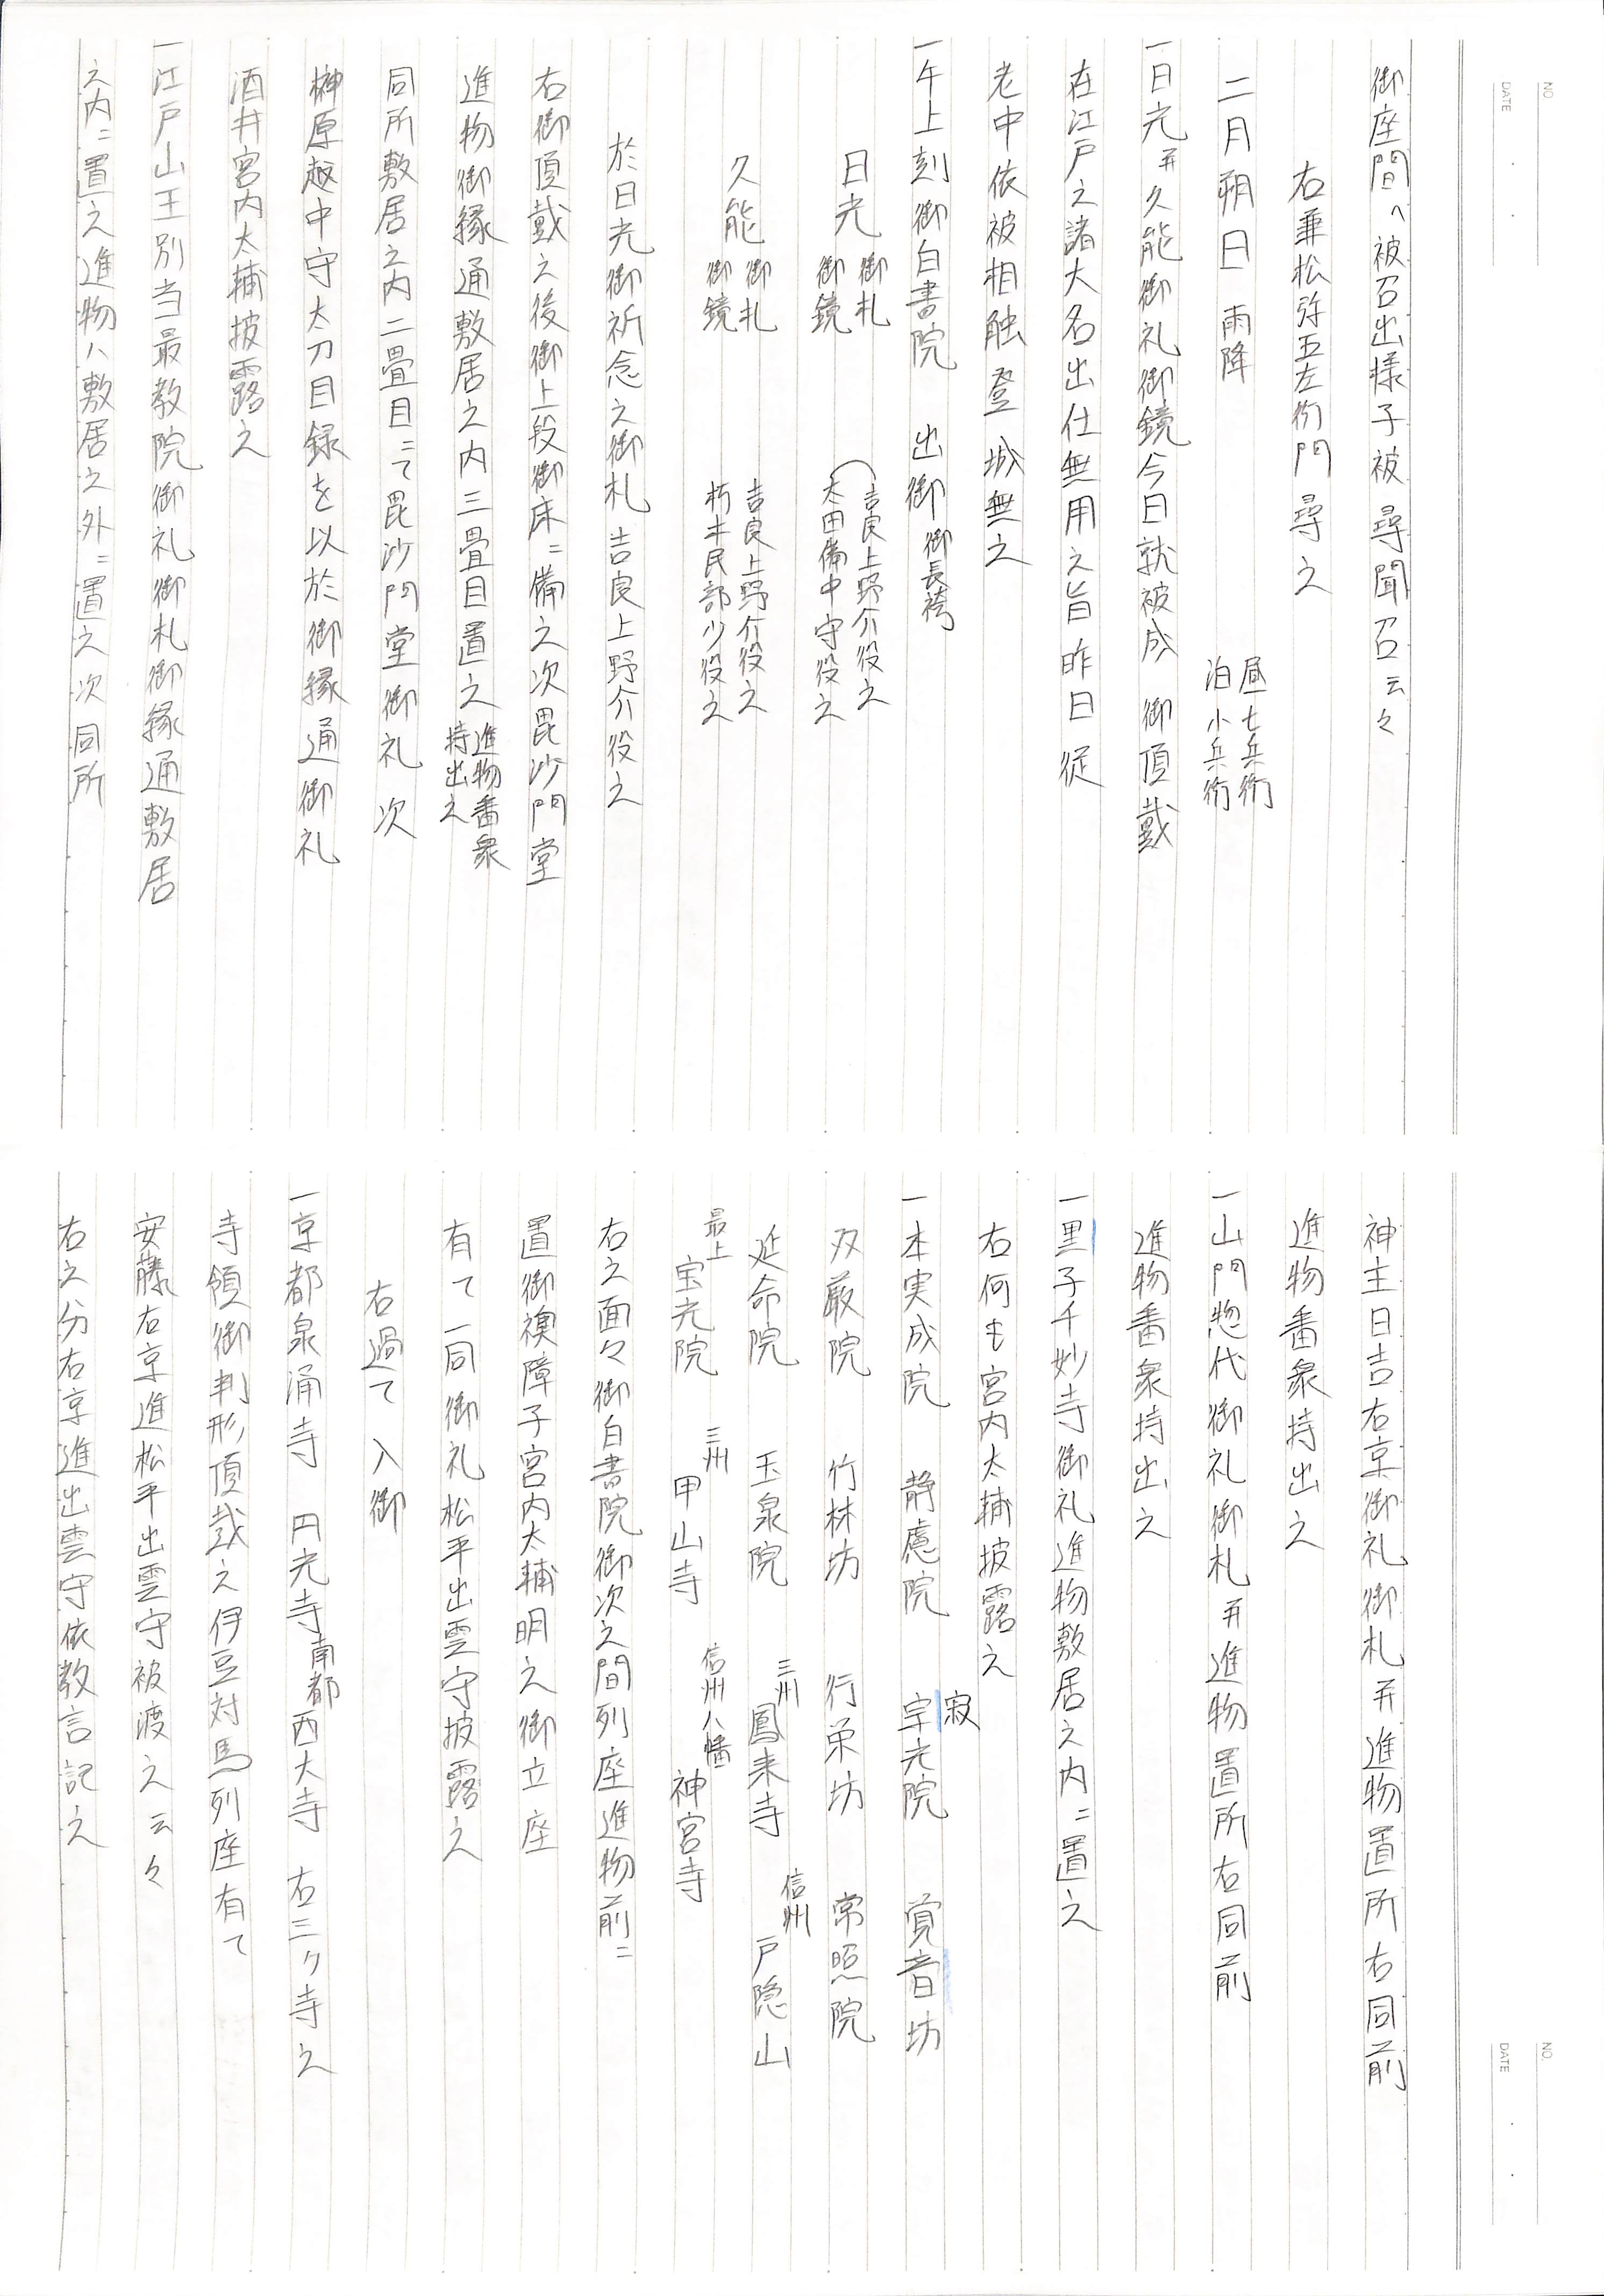 御座間へ被召出様子被 尋聞召云々
右兼松弥五左衛門 尋之
二月朔日 雨降 昼七兵衛 泊小兵衛
一日光并久能御礼御鏡今日就被成 御頂戴
在江戸之諸大名出仕無用之旨昨日従
老中依被相触登 城無之
一午上刻御白書院 出御 御長袴
日光 御札 御鏡 吉良上野介役之 太田備中守役之
久能 御札 御鏡 吉良上野介役之 朽木民部少役之
於日光御祈念之御札 吉良上野介役之
右御頂戴之後御上段御床ニ備之次毘沙門堂
進物御縁通敷居之内三畳目置之 進物番衆 持出之
同所敷居之内二畳目ニて毘沙門堂御礼 次
榊原越中守太刀目録を以於御縁通御礼
酒井宮内大輔披露之
一江戸山王別当最教院御礼御札御縁通敷居
之内ニ置之進物ハ敷居之外ニ置之次同所
NO.
DATE
神主日吉右京御礼御札并進物置所右同前
進物番衆持出之
一山門惣代御礼御札并進物置所右同前
進物番衆持出之
一里子千妙寺御礼進物敷居之内ニ置之
右何も宮内大輔披露之
一本実成院 静慮院 宗光院 寂 覚音坊
双厳院 竹林坊 行栄坊 常照院
延命院 玉泉院 三州 鳳来寺 信州 戸隠山
最上 宝光院 三州 甲山寺 信州八幡 神宮寺
右之面々御白書院御次之間列座進物前ニ
置御襖障子宮内大輔明之御立座
有て一同御礼松平出雲守披露之
右過て 入御
一京都泉涌寺 円光寺 南都西大寺 右三ケ寺之
寺領御判形頂戴之伊豆対馬列座有て
安藤右京進松平出雲守被渡之云々
右之分右京進出雲守依教言記之
NO.
DATE